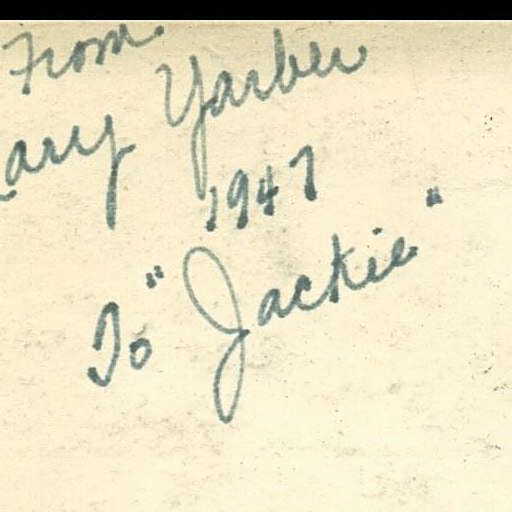 From
ary Yarber
1947
To "Jackie"